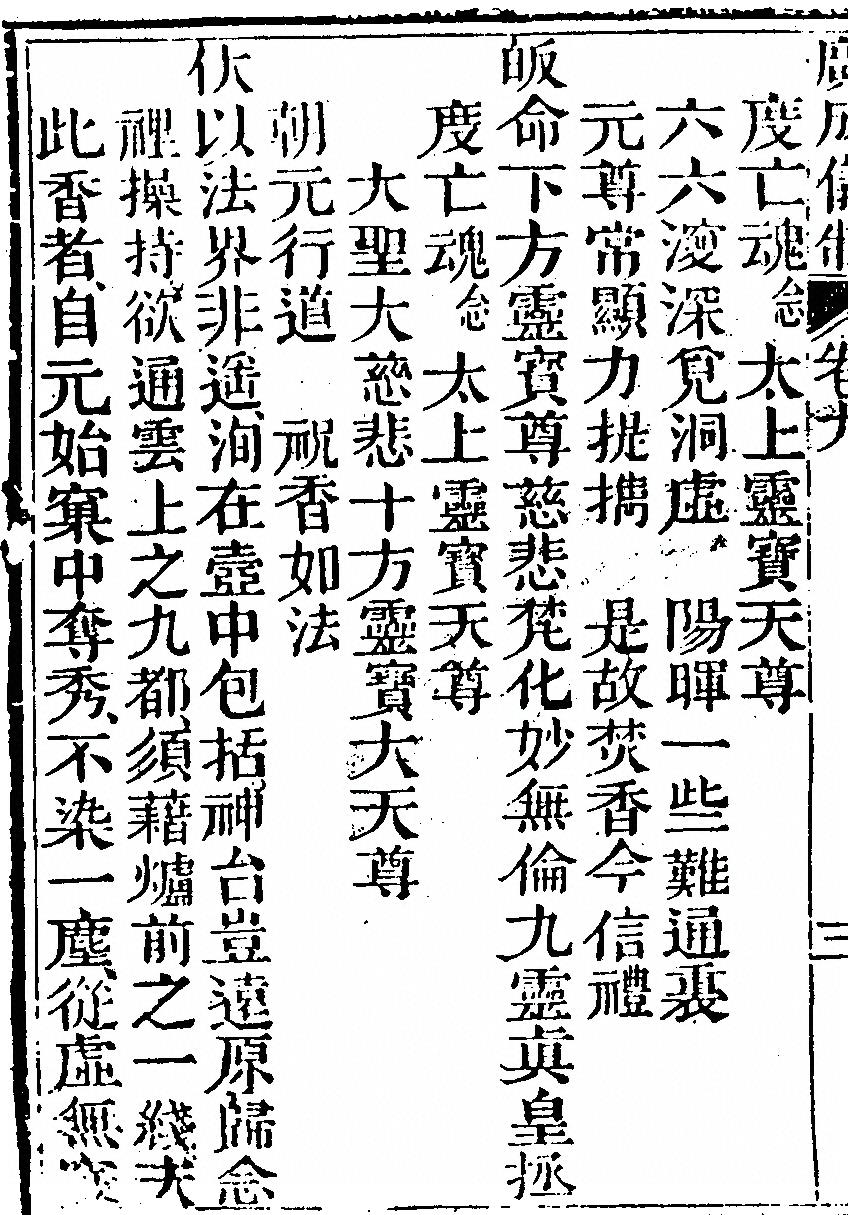 廣成儀制 卷九 三
度亡魂 念 太上靈寶天尊
六六澓深覓洞虛 陽暉一些難通裏
元尊常顯力提携 是故焚香今信禮
皈命下方靈寶尊慈悲梵化妙無倫九靈真皇拯
度亡魂 念 太上靈寶天尊
大聖大慈悲十方靈寶大天尊
朝元行道 祝香如法
伏以法界非遥洵在壺中包括神台豈遠原歸念
裡操持欲通雲上之九都須藉爐前之一綫夫
此香者自元始窠中奪秀不染一塵從虛無